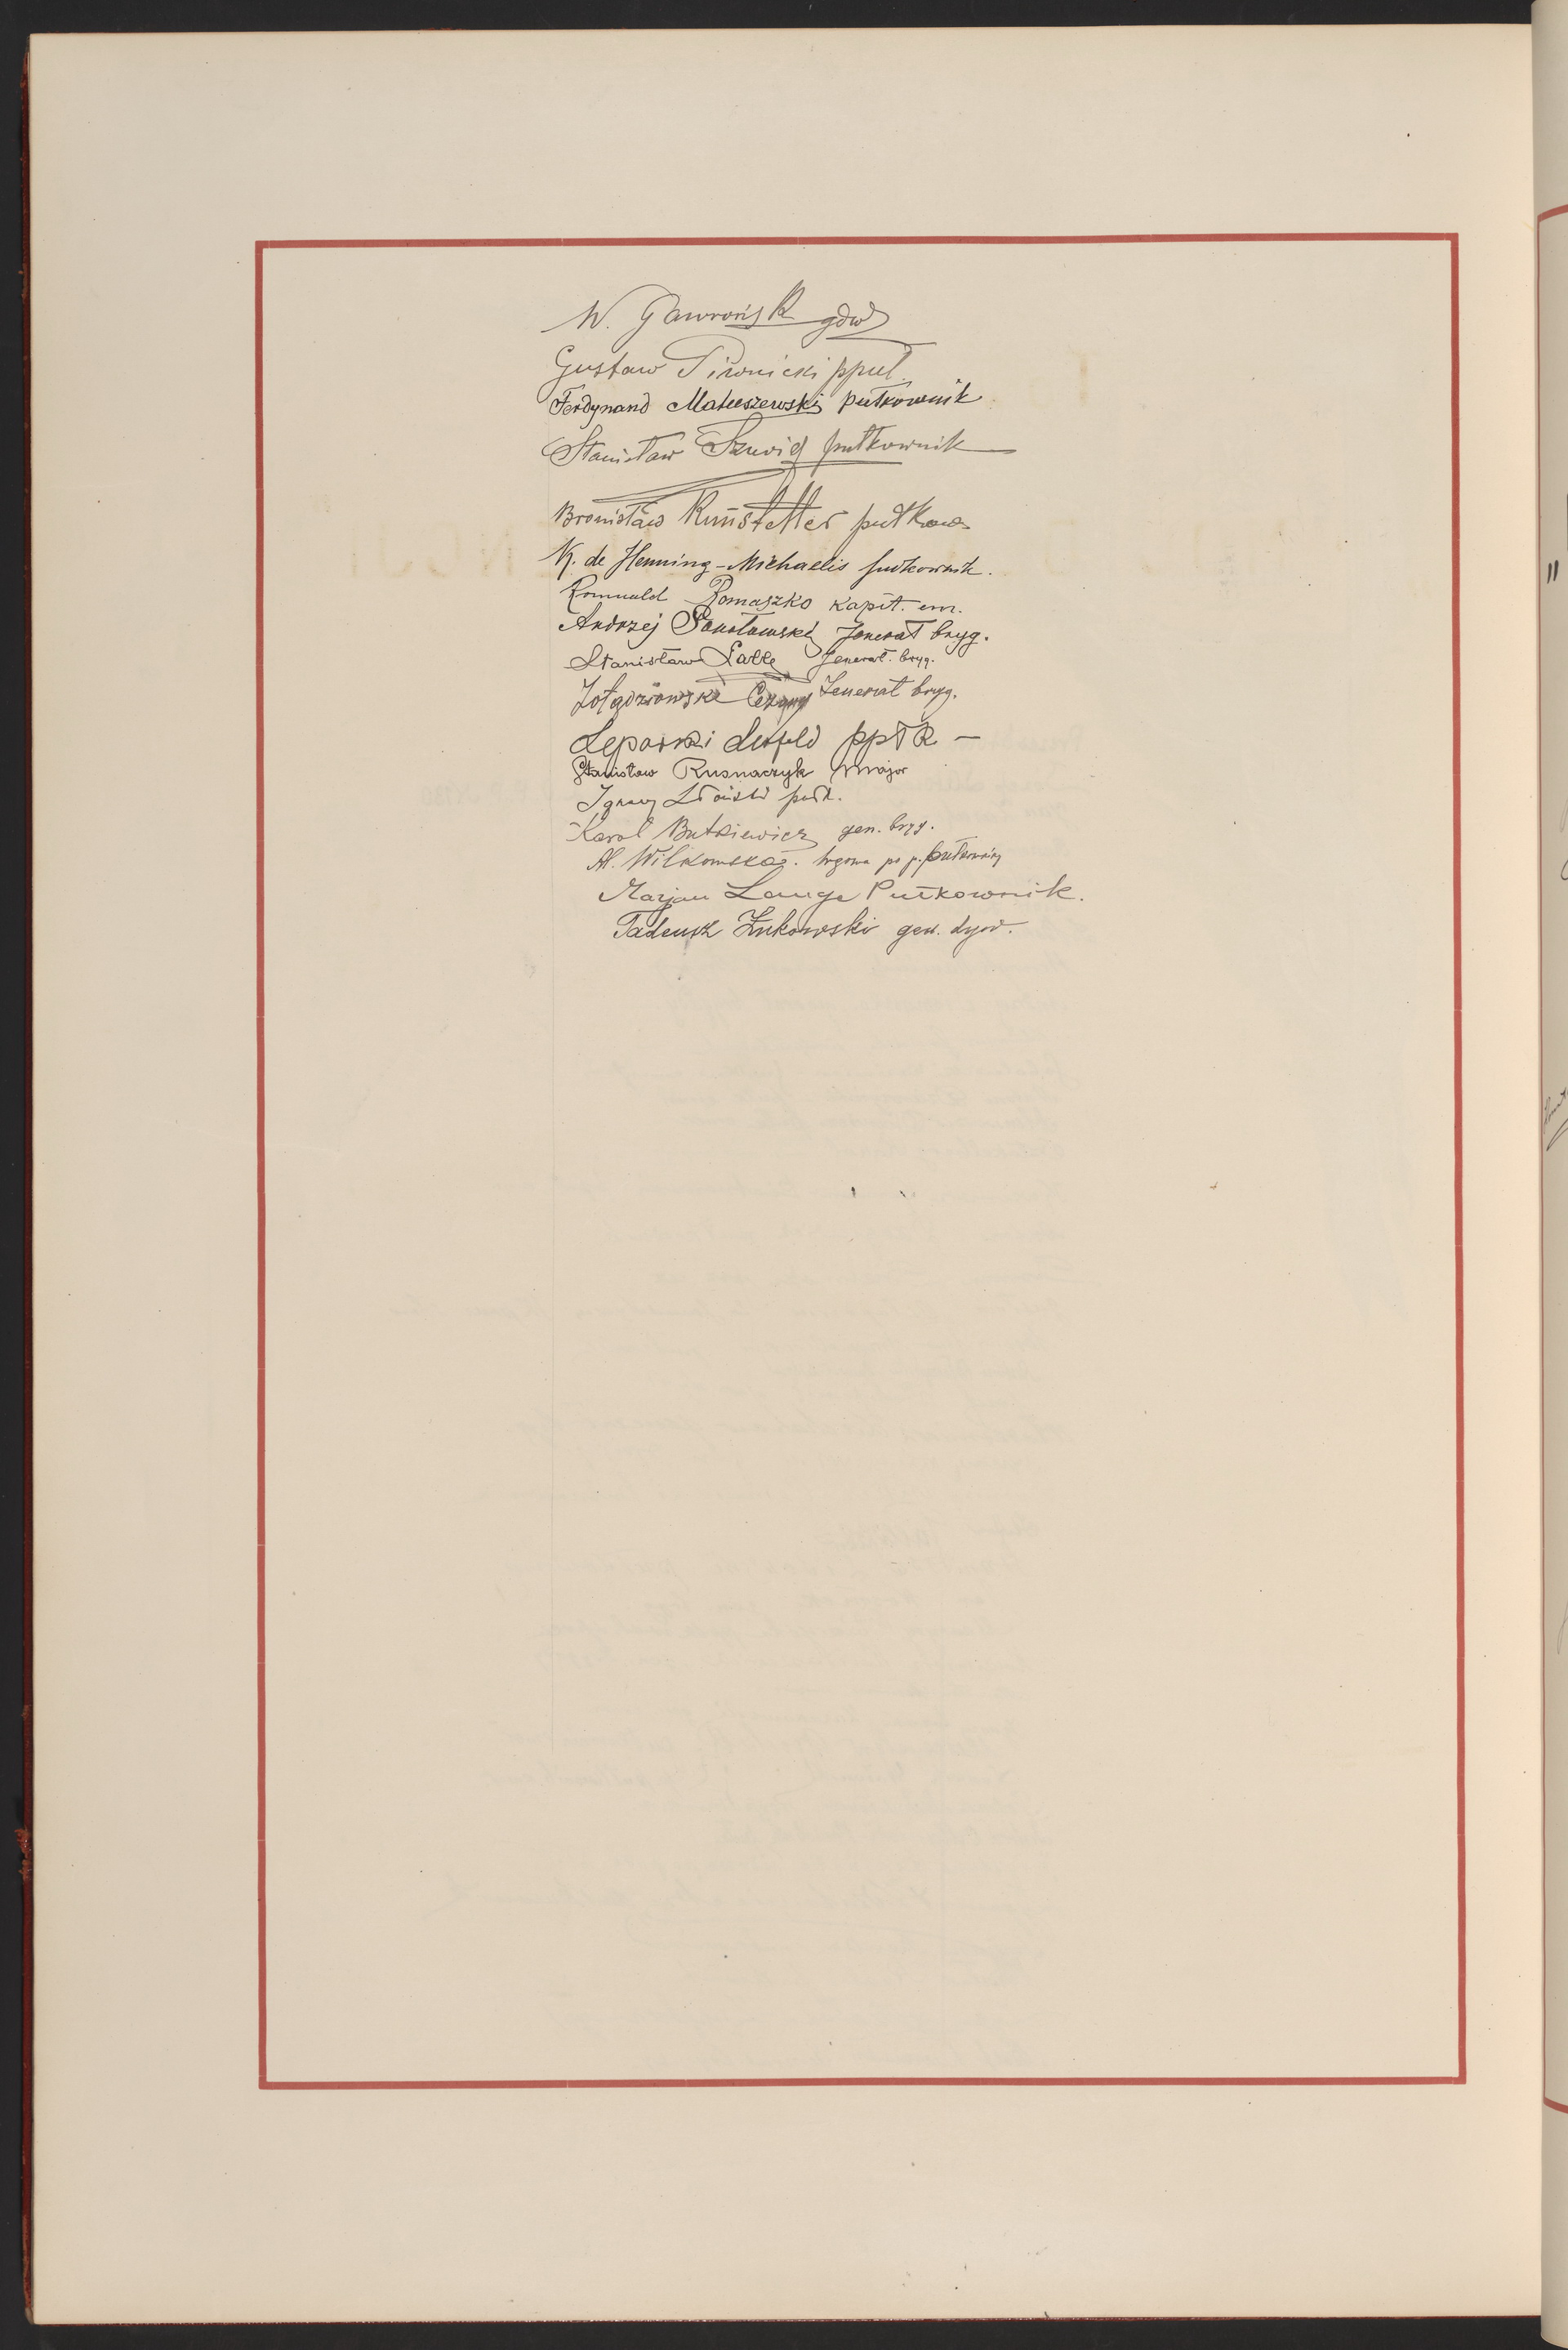 W. Gawroński gdw
Gustaw Piwnicki ppuł.
Ferdynand Matuszewski pułkownik
Stanisław Szwig pułkownik
Bronisław Kunstetter pułkow
K. de Henning-Michaelis pułkownik.
Romuald Romaszko kapit. em.
Andrzej Jenerał bryg.
Stanisław Jenerał. bryg.
Żołądziowski Cezary Jenerał bryg.
Leparski Leopold ppłk —
Stanisław Rusnaczyk major
Ignacy
Karol Butkiewicz gen. bryg.
M. Wilkomska
Marjan Lange Pułkownik.
Tadeusz Żukowski gen. dyw.